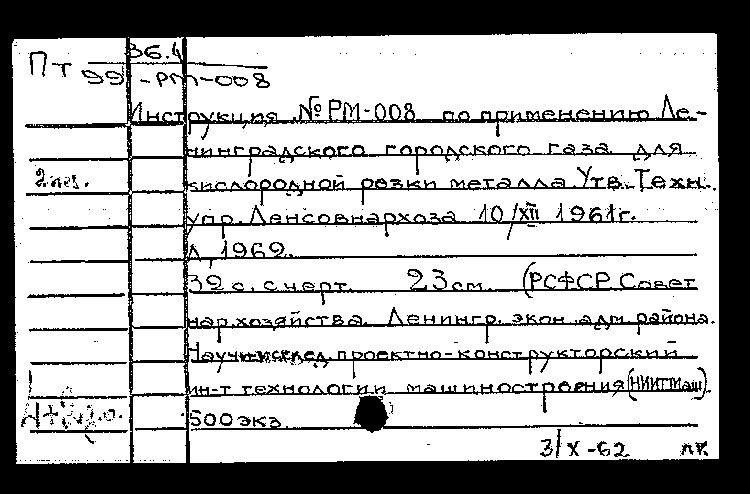 Пт 36.4
99-РМ-008
Инструкция № РМ-008 по применению Ле-
нинградского городского газа для
2 экз. кислородной резки металла. Утв. Техн.
упр. Ленсовнархоза 10/XII 1961г.
Л, 1962.
32 с. с черт. 23 см. (РСФСР. Совет
нар. хозяйства. Ленингр. экон. адм. района.
Научн.-исслед. проектно-конструкторский
ин-т технологии машиностроения (НИИТМаш).
500 экз.
3/X-62 пк